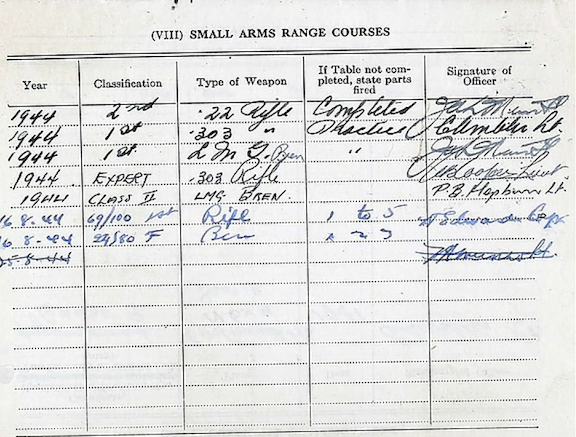 (VIII) SMALL ARMS RANGE COURSES
Year Classification Type of Weapon If Table not com-pleted, state parts fired Signature of Officer
1944 2nd .22 Rifle Completed
1944 1st .303 " Practice Lt.
1944 1st L M G. Bren "
1944 EXPERT .303 Rifle Lieut
1944 CLASS II LMG BREN. P.B. Hepburn Lt.
16.8.44 69/100 1st Rifle 1 to 5
16.8.44 F Bren
25.8.44